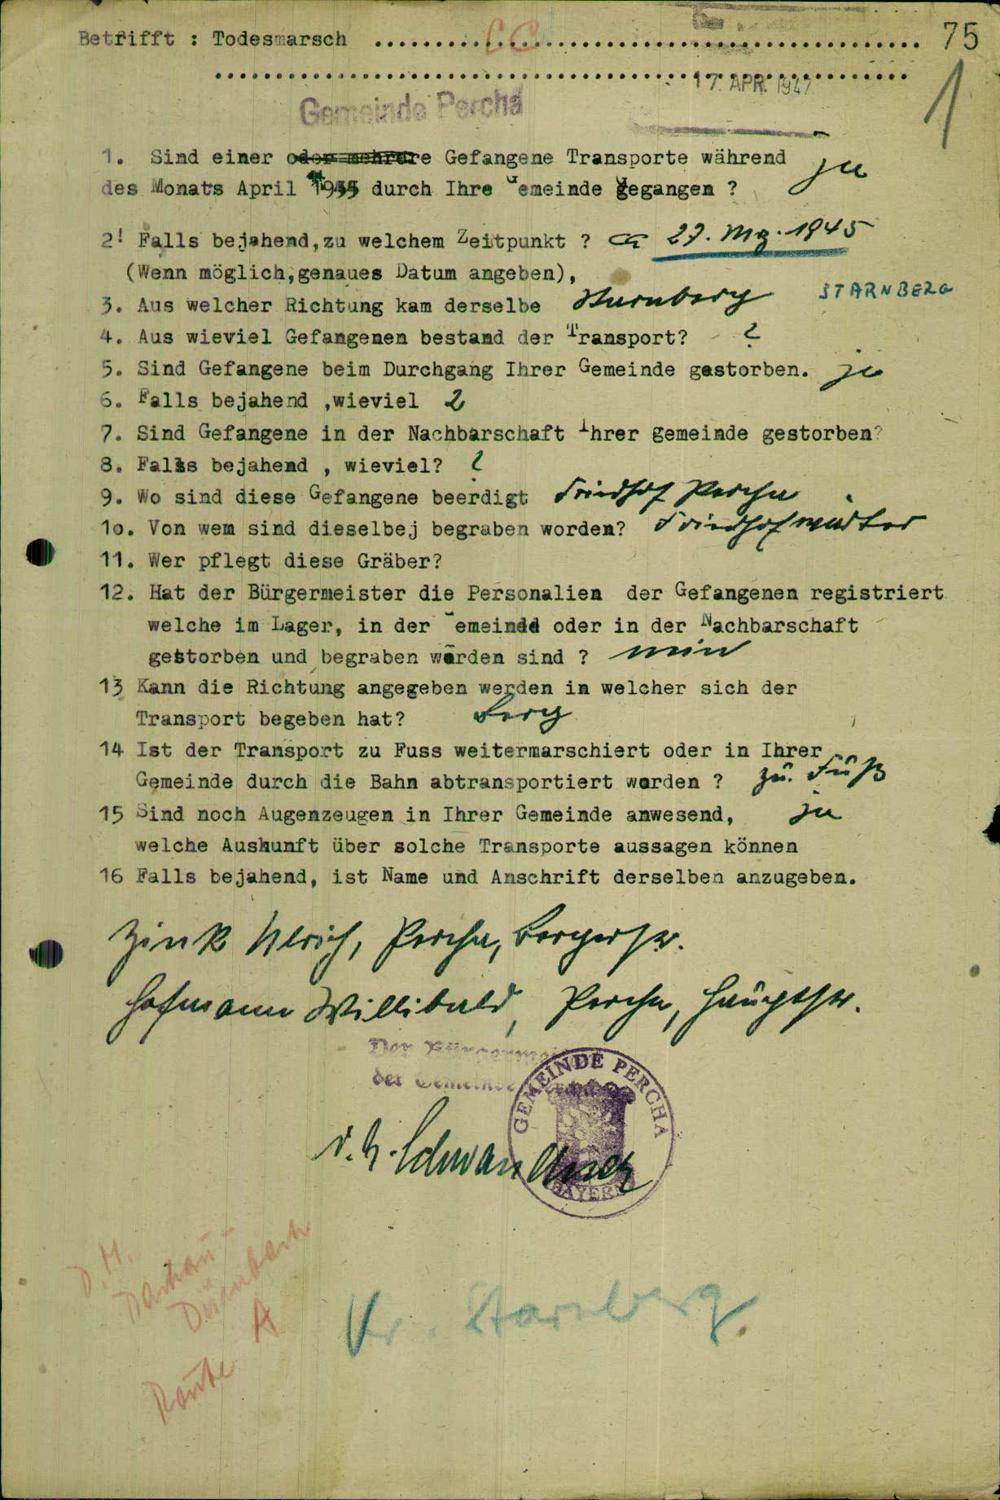 75
Betrifft : Todesmarsch
CC
17. APR. 1947
1
Gemeinde Percha
1. Sind einer oder mehrere Gefangene Transporte während
des Monats April 1945 durch Ihre Gemeinde gegangen ? ja
2! Falls bejahend,zu welchem Zeitpunkt ? ca 29. Mz. 1945
(Wenn möglich,genaues Datum angeben),
3. Aus welcher Richtung kam derselbe Starnberg STARNBERG
4. Aus wieviel Gefangenen bestand der Transport? ?
5. Sind Gefangene beim Durchgang Ihrer Gemeinde gestorben. ja
6. Falls bejahend ,wieviel 2
7. Sind Gefangene in der Nachbarschaft Ihrer gemeinde gestorben?
8. Falls bejahend , wieviel? ?
9. Wo sind diese Gefangene beerdigt Friedhof Percha
1o. Von wem sind dieselbej begraben worden? Friedhofwärter
11. Wer pflegt diese Gräber?
12. Hat der Bürgermeister die Personalien der Gefangenen registriert
welche im Lager, in der Gemeinde oder in der Nachbarschaft
gestorben und begraben worden sind ? nein
13 Kann die Richtung angegeben werden in welcher sich der
Transport begeben hat? Berg
14 Ist der Transport zu Fuss weitermarschiert oder in Ihrer
Gemeinde durch die Bahn abtransportiert worden ? zu Fuß
15 Sind noch Augenzeugen in Ihrer Gemeinde anwesend, ja
welche Auskunft über solche Transporte aussagen können
16 Falls bejahend, ist Name und Anschrift derselben anzugeben.
Zink Ulrich, Percha, Bergerstr.
Hofmann Willibald, Percha, Hauptstr.
Der Bürgermeister
der Gemeinde
GEMEINDE PERCHA
BAYERN
D.M.
Dachau-
Dürnbach
A
Route
Kr. Starnberg